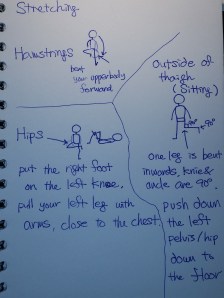 Stretching.
Hamstrings
beat
your upperbody
forward
Outside of
thaigh
(Sitting)
90°
Hips
put the right foot
on the left knee.
pull your left leg with
arms, close to the chest
one leg is beat
inwards, knie&
ancle are 90°.
push down
the left
pelvis/hip
down to
the floor